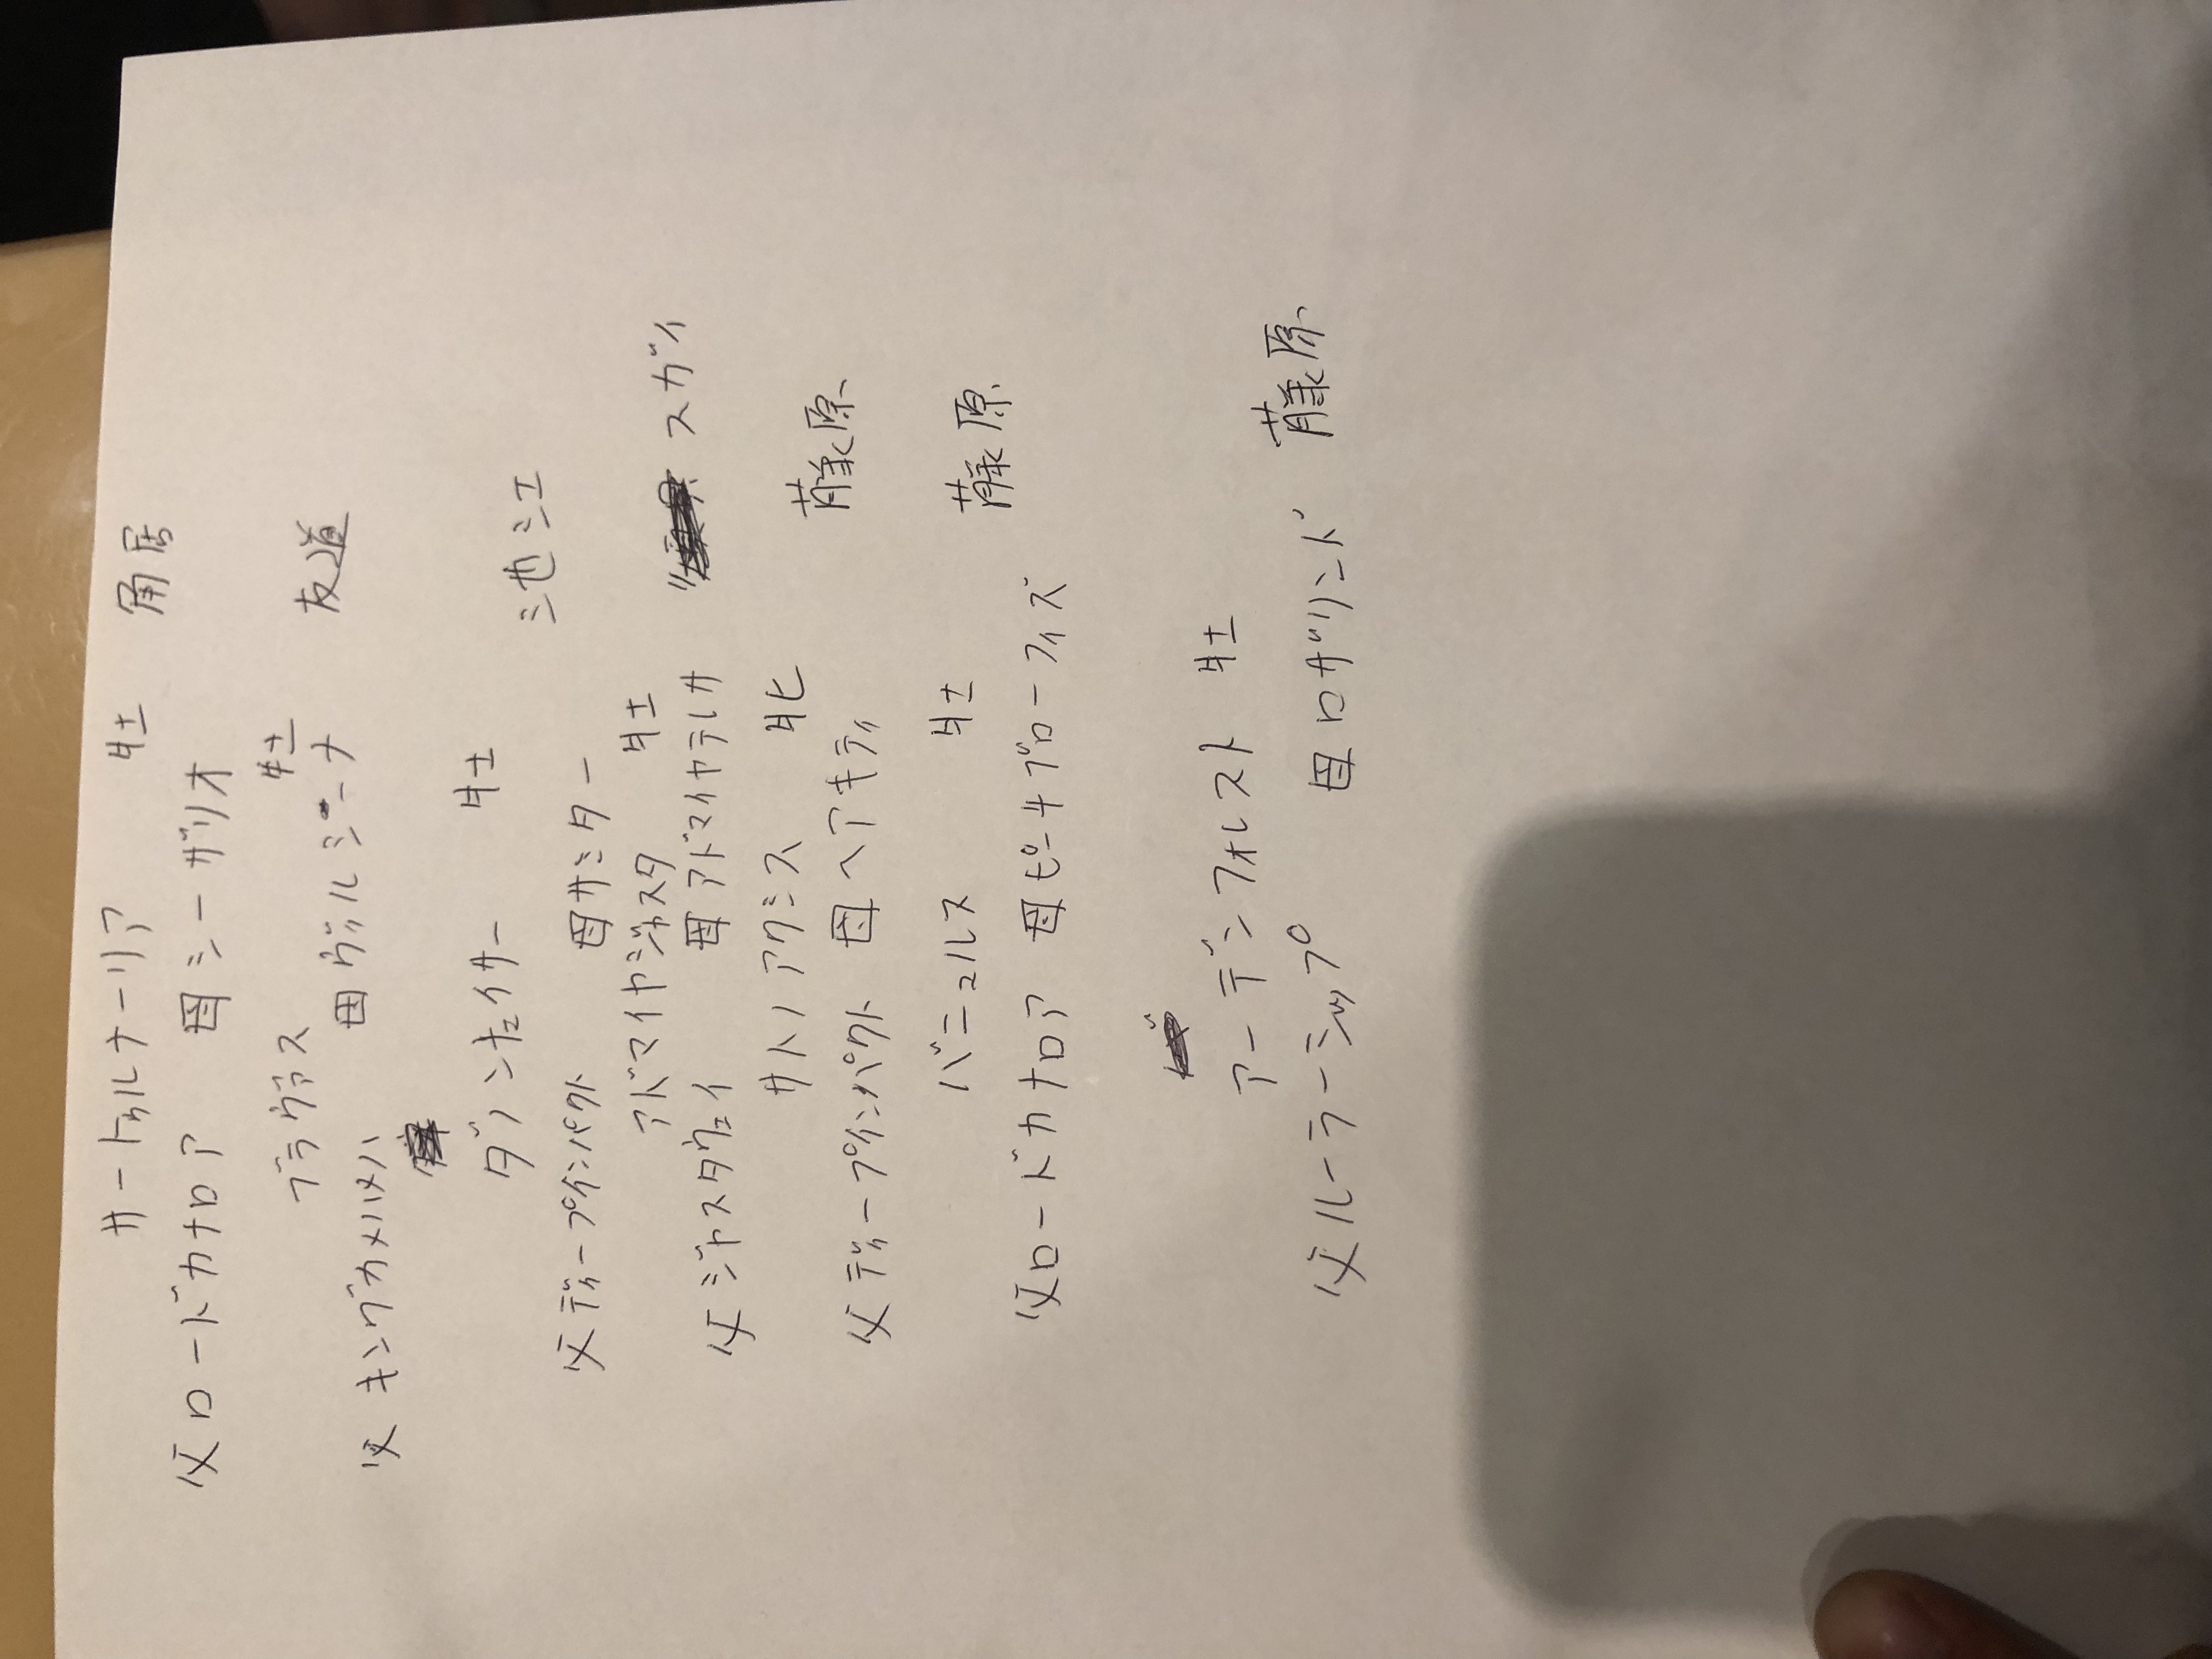 サートゥルナーリア 牡 角居
父ロードカナロア 母シーザリオ
ブラヴァス 牡 友道
父キングカメハメハ 母ヴィルシーナ
ダノンチェイサー 牡 池江
父ディープインパクト 母サミター
アドマイヤジャスタ 牡 スガイ
父ジャスタウェイ 母アドマイヤテレサ
サトノアクシス 牝 藤原
父ディープインパクト 母ヘアキティ
バニュルス 牡 藤原
父ロードカナロア 母ピーチブローフィズ
アーデンフォレスト 牡 藤原
父ルーラーシップ 母ロザリンド